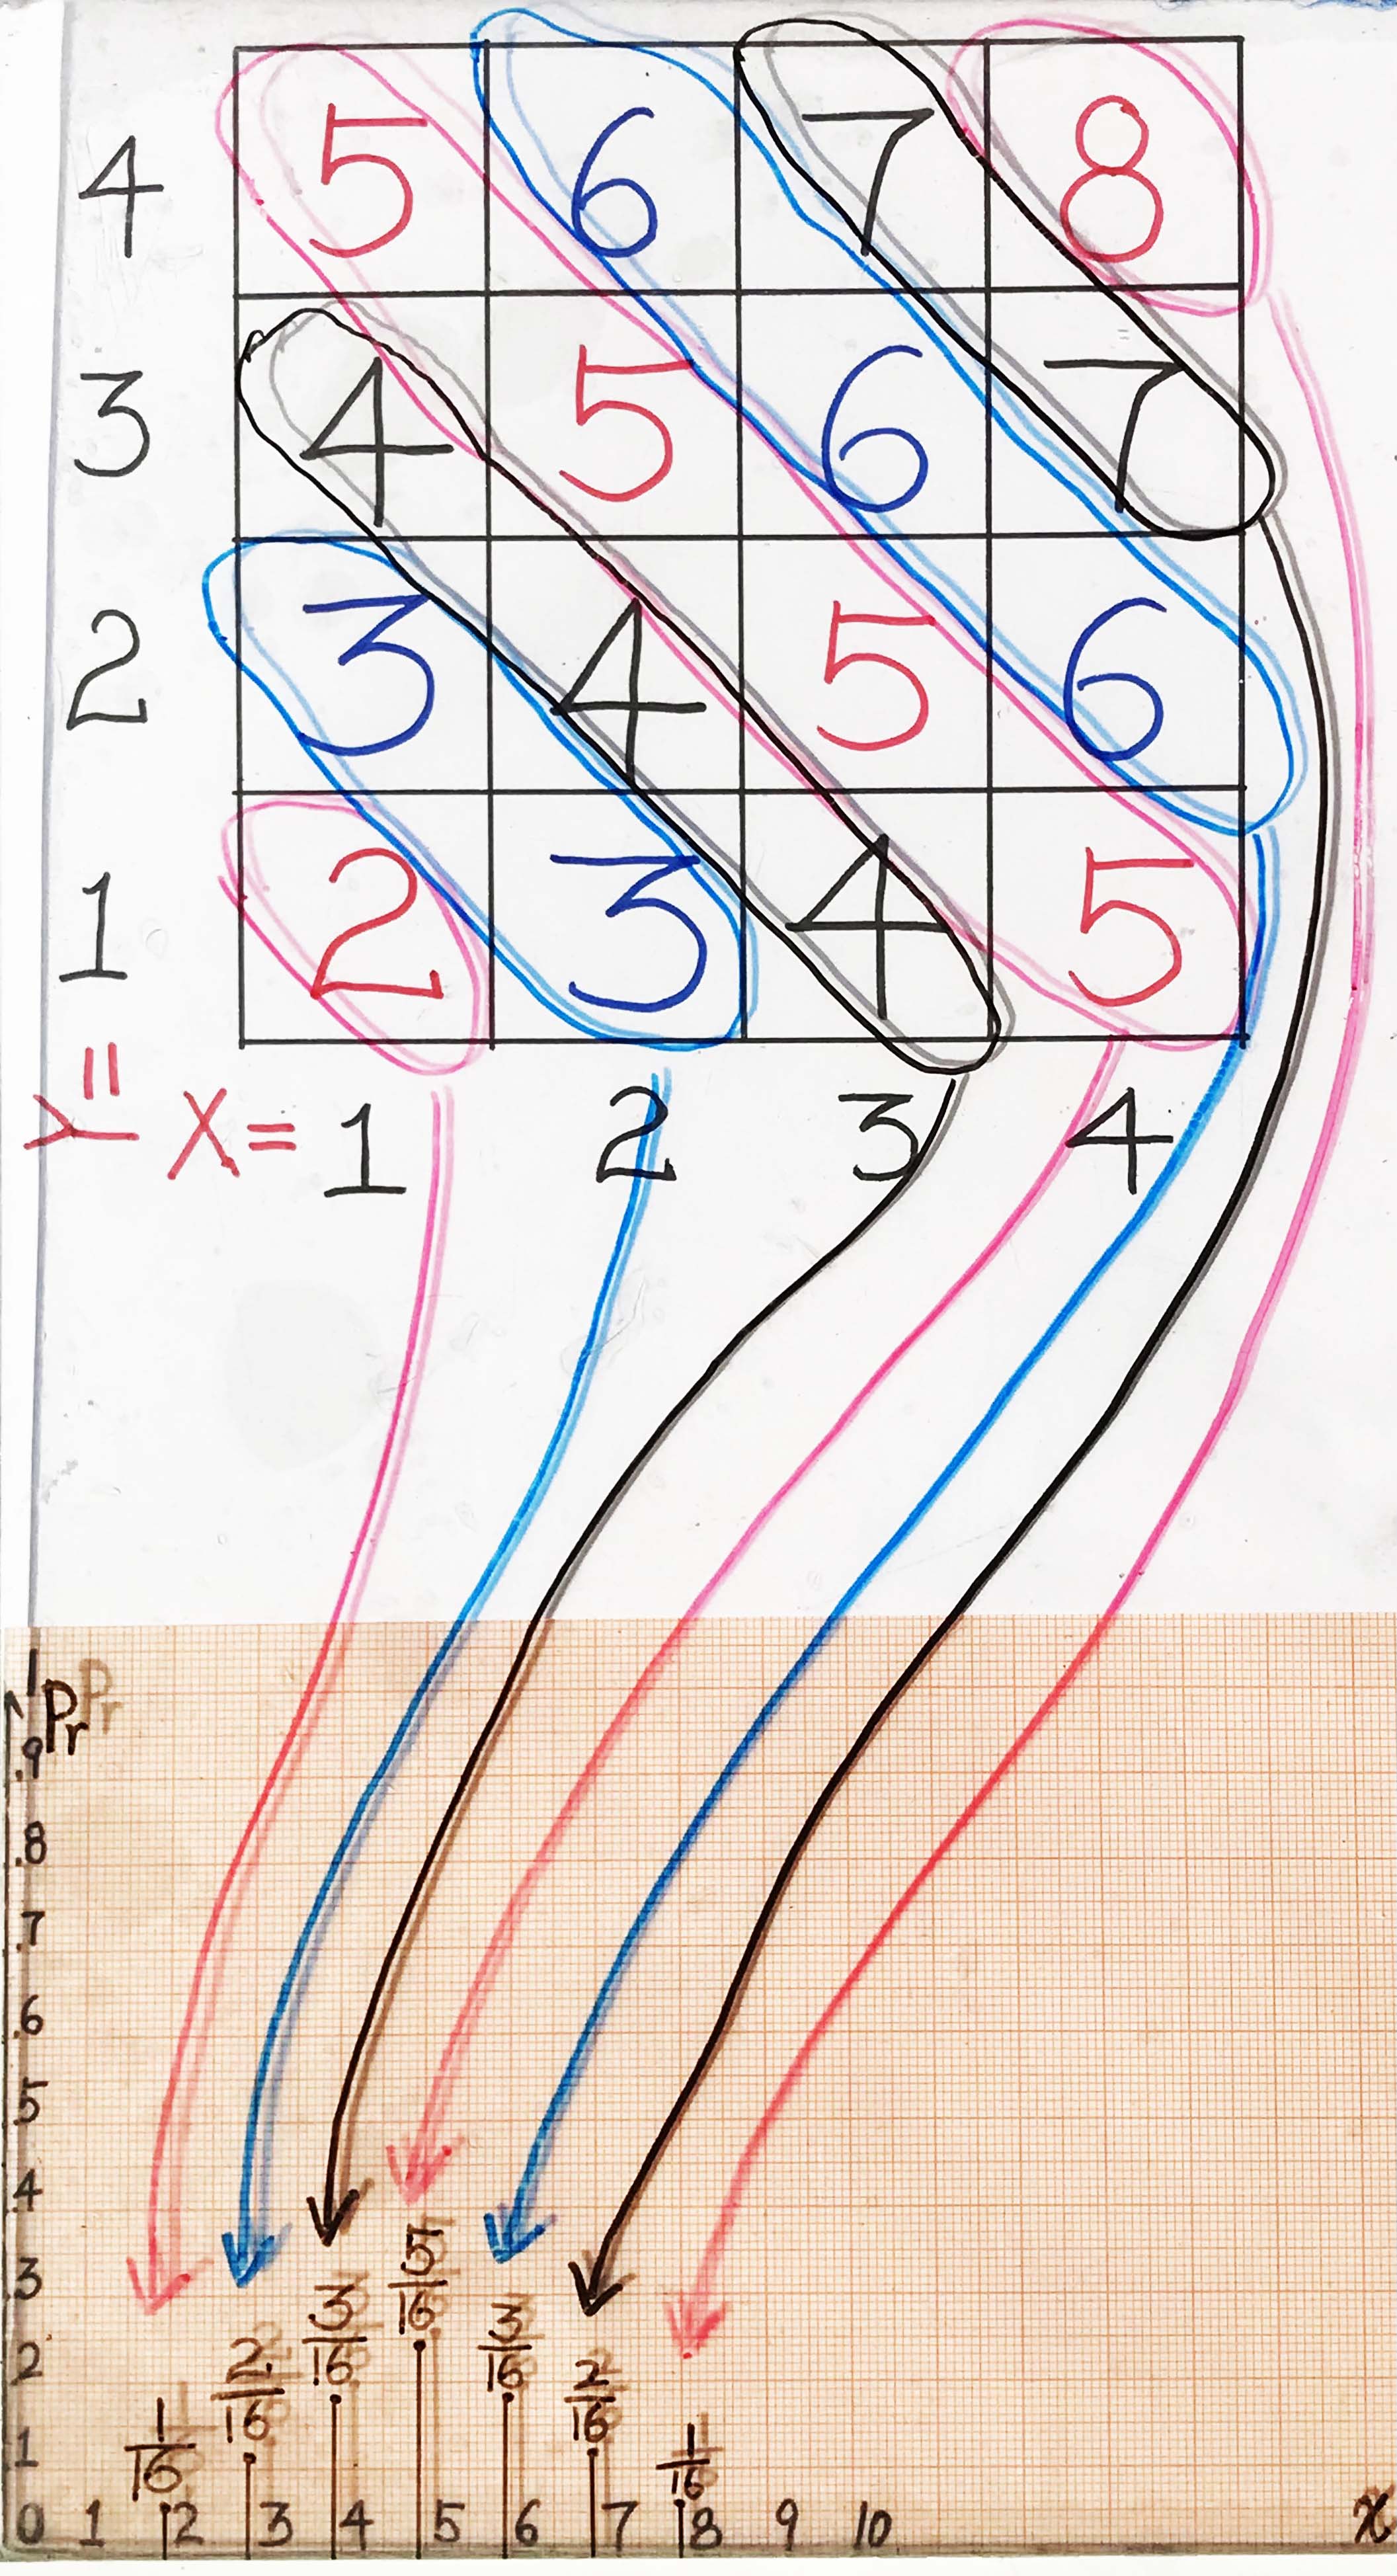 4 5 6 7 8
3 4 5 6 7
2 3 4 5 6
1 2 3 4 5
Y= X= 1 2 3 4
1
Pr
.9
.8
.7
.6
.5
.4
.3
.2
.1
1/16 2/16 3/16 5/16 3/16 2/16 1/16
0 1 2 3 4 5 6 7 8 9 10 x